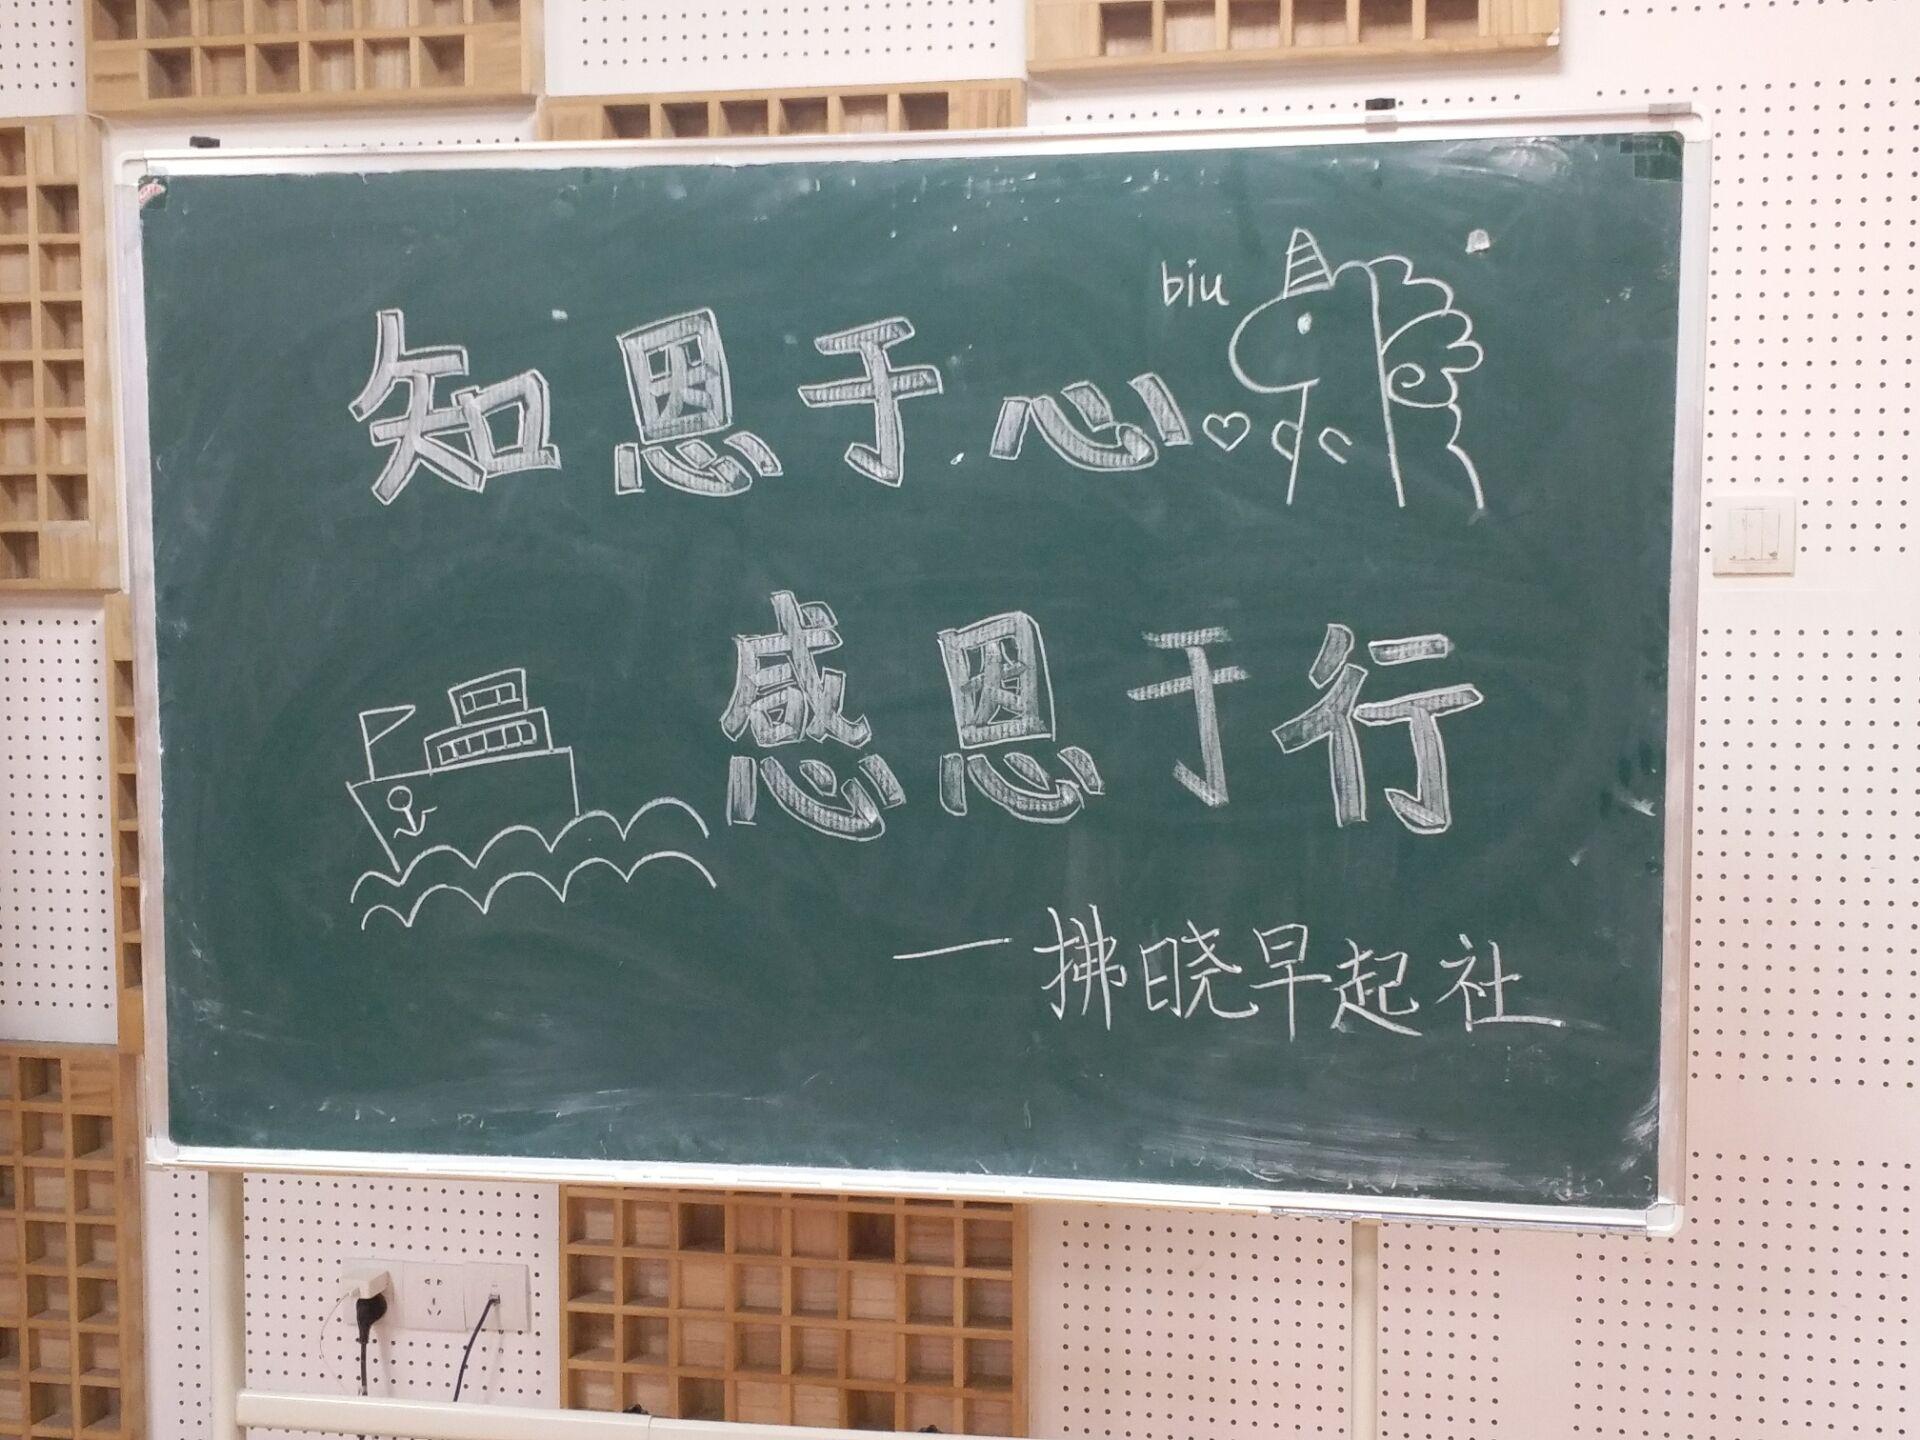 biu
知恩于心
感恩于行
一拂晓早起社